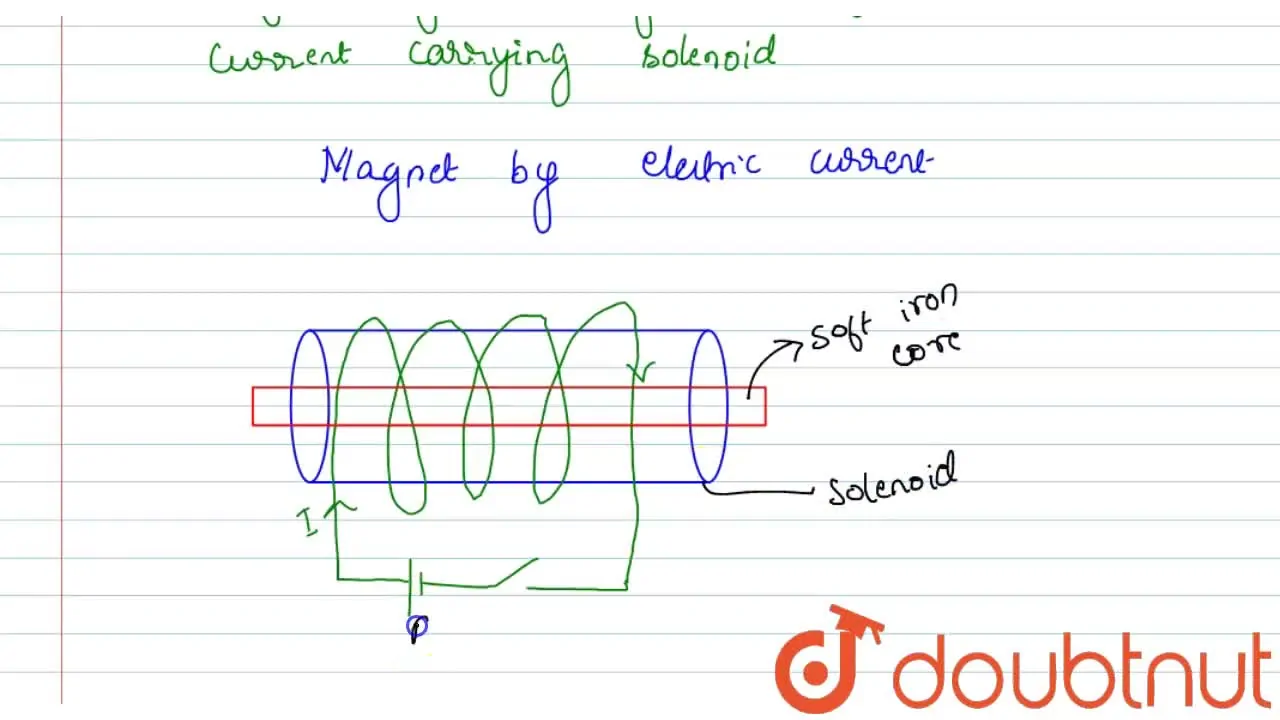 current carrying solenoid
Magnet by electric current
soft iron
core
solenoid
I
doubtnut